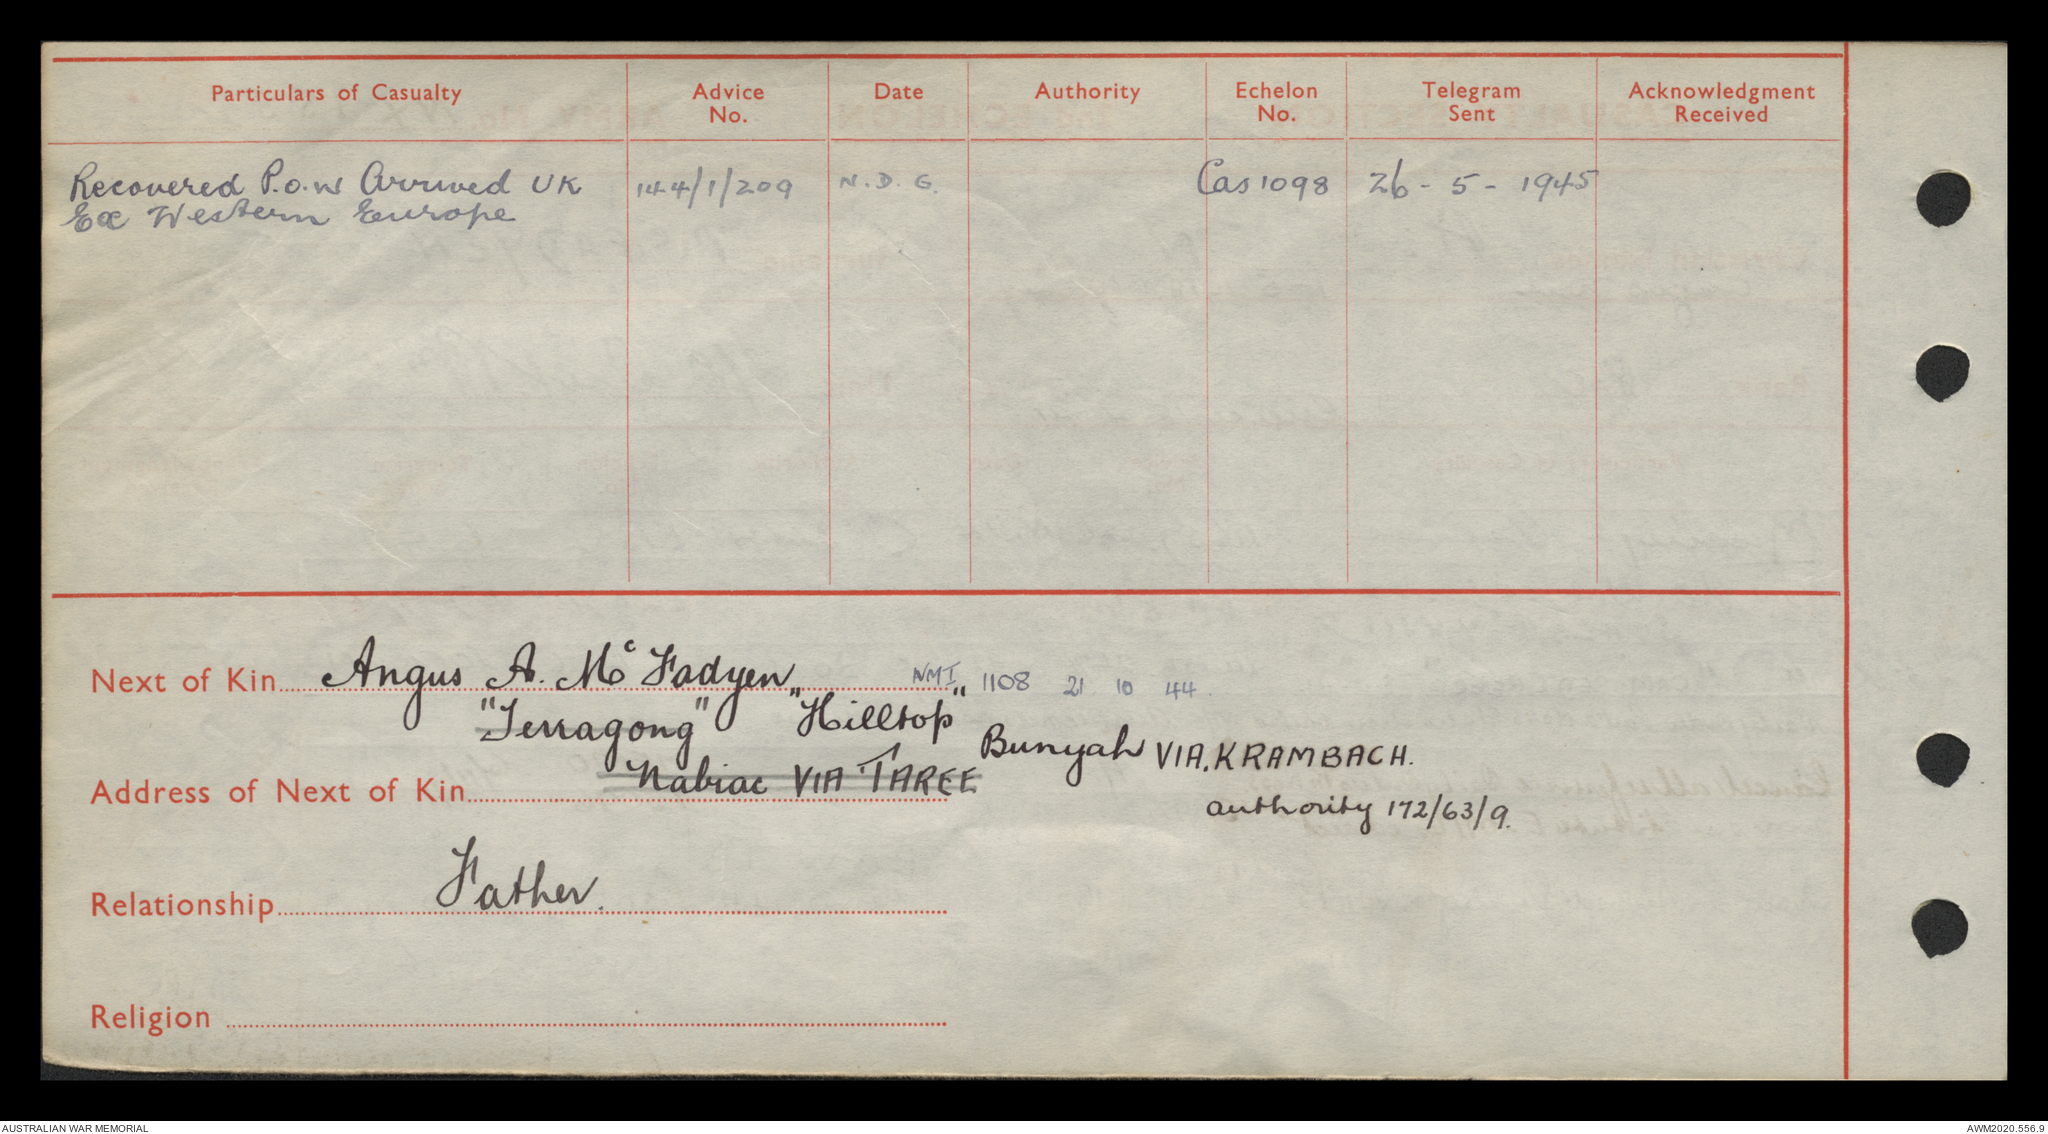 Particulars of Casualty Advice No. Date Authority Echelon No. Telegram Sent Acknowledgment Received
Recovered P.O.W Arrived UK 144/1/209 N.D.G. Cas 1098 26-5-1945
Ex Western Europe
Next of Kin Angus A. McFadyen NMI 1108 21 10 44.
"Terragong" "Hilltop"
Bunyah VIA. KRAMBACH.
Address of Next of Kin Nabiac VIA TAREE
authority 172/63/9.
Relationship Father.
Religion
AUSTRALIAN WAR MEMORIAL AWM2020.556.9